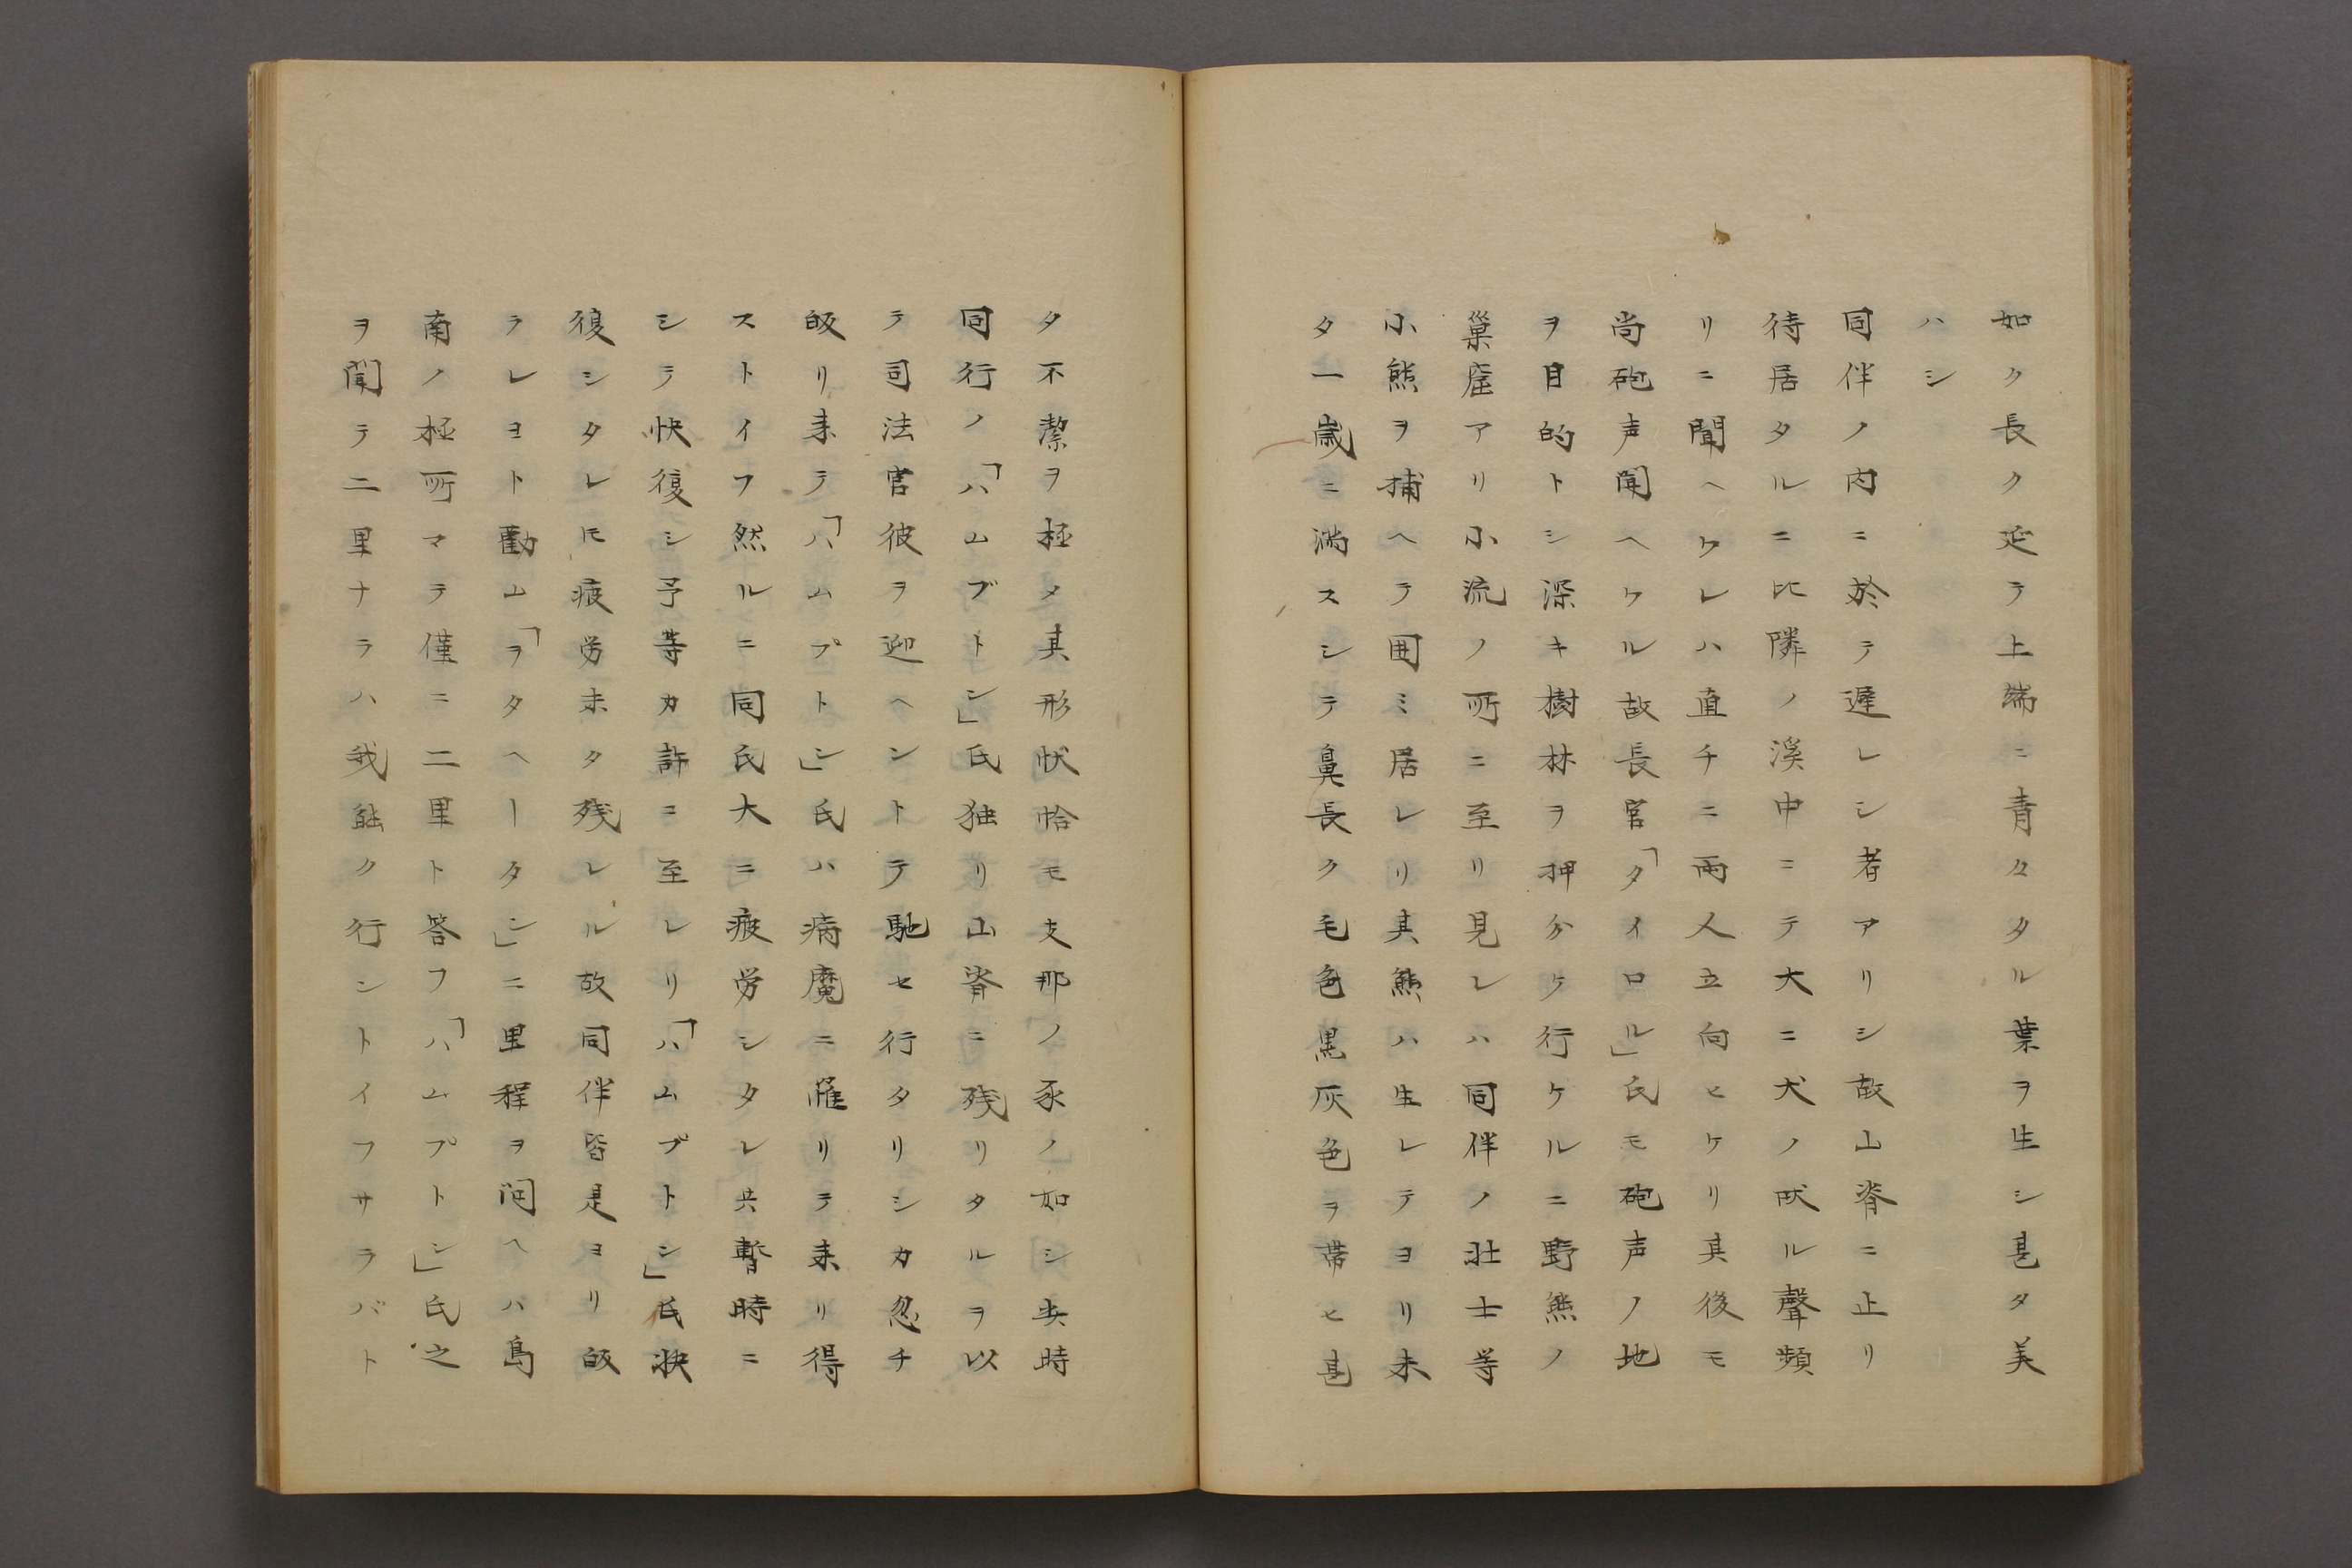 如ク長ク延テ上端ニ青々タル葉ヲ生シ甚タ美
ハシ
同伴ノ内ニ於テ遅レシ者アリシ故山脊ニ止リ
待居タルニ比隣ノ溪中ニテ大ニ犬ノ吠ル聲頻
リニ聞ヘケレハ直チニ両人立向ヒケリ其後モ
尚砲声聞ヘケル故長官「タイロル」氏モ砲声ノ地
ヲ目的トシ深キ樹林ヲ押分ケ行ケルニ野熊ノ
巢窟アリ小流ノ所ニ至リ見レハ同伴ノ壮士等
小熊ヲ捕ヘテ囲ミ居レリ其熊ハ生レテヨリ未
タ一歳ニ満スシテ鼻長ク毛色黒灰色ヲ帯ヒ甚
タ不潔ヲ極メ其形状恰モ支那ノ豕ノ如シ此時
同行ノ「ハムプトン」氏独リ山脊ニ残リタルヲ以
テ司法官彼ヲ迎ヘントテ馳セ行タリシカ忽チ
皈リ来テ「ハムプトン」氏ハ病魔ニ罹リテ来リ得
ストイフ然ルニ同氏大ニ疲労シタレ共暫時ニ
シテ快復シ予等カ許ニ至レリ「ハムプトン」氏快
復シタレ𪜈疲労未タ残レル故同伴皆是ヨリ皈
ラレヨト勸ム「ヲタヘータン」ニ里程ヲ問ヘハ島
南ノ極所マテ僅ニ二里ト答フ「ハムプトン」氏之
ヲ聞テ二里ナラハ我能ク行ントイフサラバト